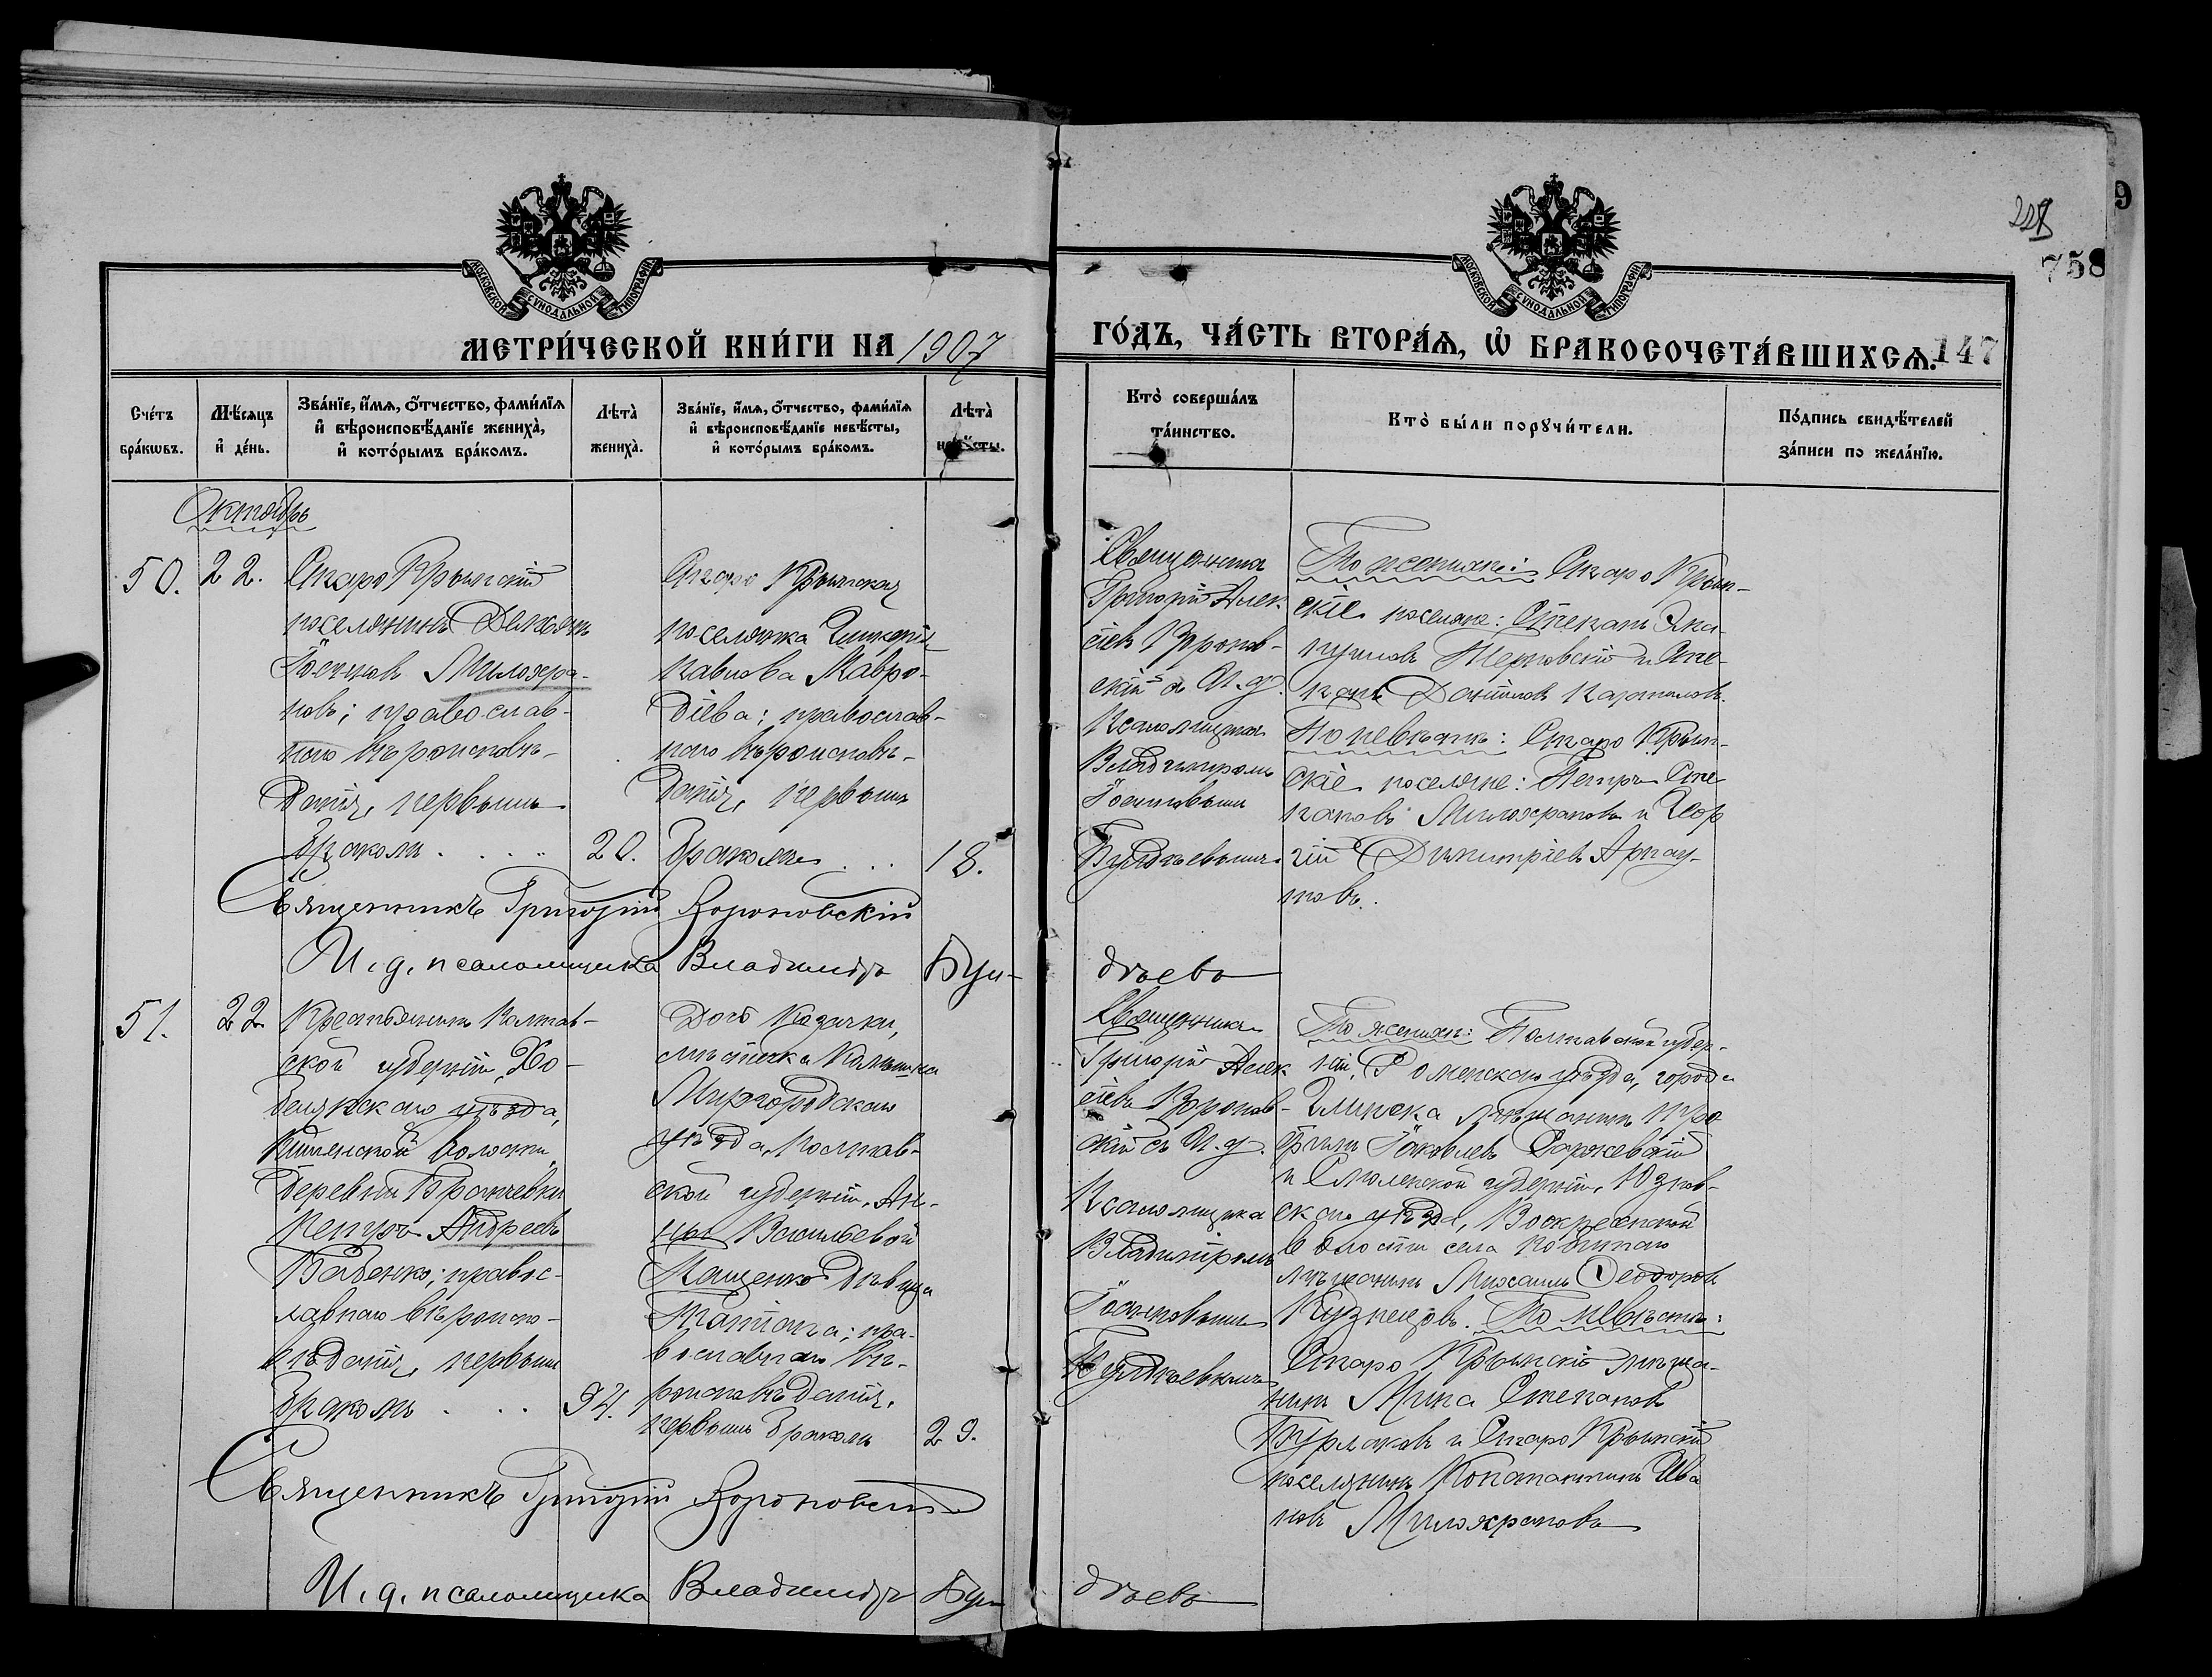 9
228
758
МОСКОВСКОЙ СѴНОДАЛЬНОЙ ТИПОГРАФІИ
МОСКОВСКОЙ СѴНОДАЛЬНОЙ ТИПОГРАФІИ
МЕТРИ́ЧЕСКОЙ КНИ́ГИ НА 1907
ГО́ДЪ, ЧА́СТЬ ВТОРА́Ѧ, Ѡ҆ БРАКОСОЧЕТА́ВШИХСѦ.
147
Сче́тъ бра́кѡвъ.
Мѣ́сѧцъ и҆ де́нь.
Зва́нїе, и҆́мѧ, ѻ҆́тчество, фами́лїѧ
и҆ вѣроисповѣ́данїе жениха̀,
и҆ кото́рымъ бра́комъ.
Лѣта̀ жениха̀.
Зва́нїе, и҆́мѧ, ѻ҆́тчество, фами́лїѧ
и҆ вѣроисповѣ́данїе невѣ́сты,
и҆ кото́рымъ бра́комъ.
Лѣта̀ невѣ́сты.
Кто̀ соверша́лъ
та́инство.
Кто̀ бы́ли порꙋчи́тели.
По́дпись свидѣ́телей
за́писи по жела́нїю.
Октябрь
50.
22.
Старо Крымскій
поселянинъ Демьян
Іоанновъ Милохра-
новъ; православ-
наго вѣроисповѣ-
данія, первымъ
бракомъ . . . .
20.
Старо Крымская
поселянка
Павлова Мавро-
діева; православ-
наго вѣроисповѣ-
данія, первымъ
бракомъ . . .
18.
Священникъ
Григорій Алек
сіев Воронов-
скій съ И. д.
псаломщика
Владиміромъ
Іоанновымъ
По женихѣ: Старо Крым-
скіе поселяне: Степанъ
и Сте-
панъ Даниловъ
По невѣстѣ: Старо Крым-
скіе поселяне: Петръ Сте
пановъ Милохрановъ и Геор
гій Димитріевъ Арнау-
товъ.
Священникъ Григорій Вороновскій
И. д. псаломщика Владиміръ Бул-
дѣевъ
51.
22
Крестьянинъ Полтав-
ской губерніи, Ко-
белякскаго уѣзда,
волости,
деревни
Петръ Андреевъ
Бабенко; правос-
лавнаго вѣроиспо-
вѣданія, первымъ
бракомъ . . .
34.
Дочь казачки,
мѣстечка
Миргородскаго
уѣзда, Полтав-
ской губерніи, Ан-
ны Васильевой
дѣвица
Татіана; пра-
вославнаго вѣ-
роисповѣданія,
первымъ бракомъ
29.
Священникъ
Григорій Алек
сіевъ Воронов-
скій съ И. д.
псаломщика
Владиміромъ
Іоанновымъ
По женихѣ: Полтавской губер-
ніи, Роменскаго уѣзда, города
Глинска мѣщанинъ Тро
фимъ Іаковлевъ
и Смоленской губерніи, Юхнов-
скаго уѣзда, Воскресенской
волости села
мѣщанинъ Михаилъ Ѳеодоровъ
Кузнецовъ. По невѣстѣ:
Старо Крымскіе мѣща-
нинъ Мина Степановъ
Бурлаковъ и Старо Крымскій
поселянинъ Константинъ Ива
новъ Милохрановъ
Священникъ Григорій Вороновскій
И. д. псаломщика Владиміръ Бул-
дѣевъ